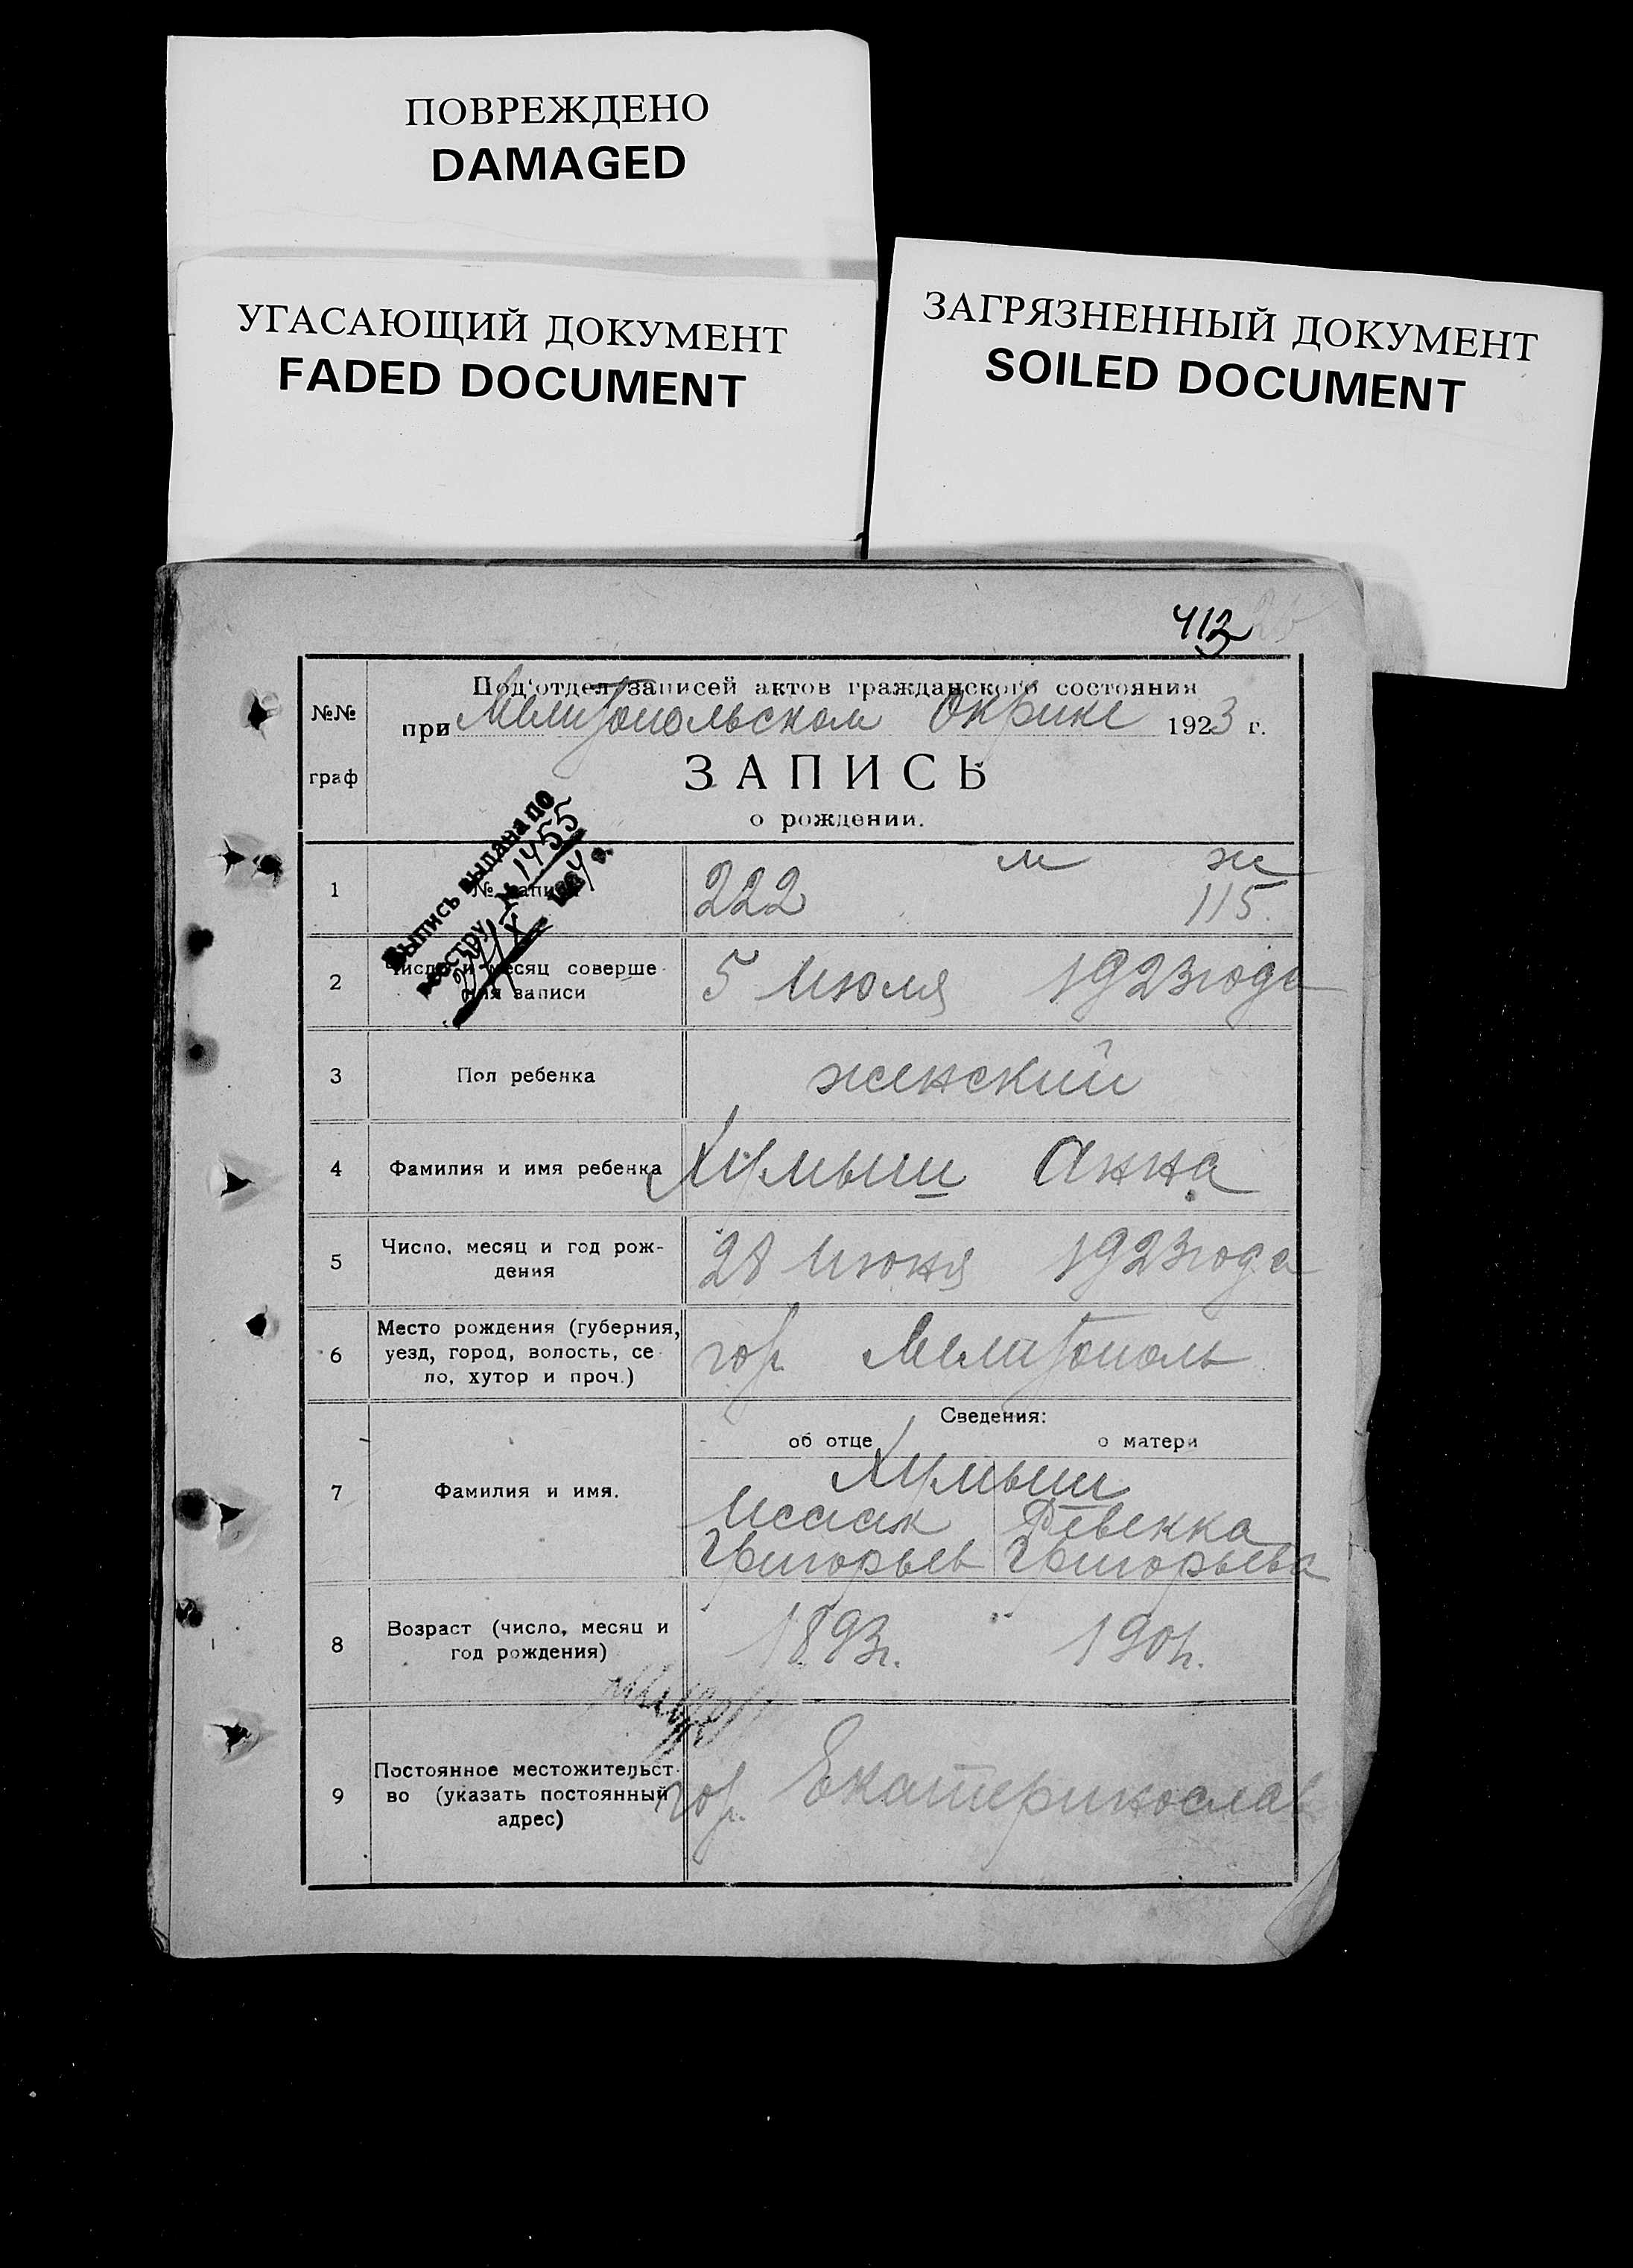 ПОВРЕЖДЕНО
DAMAGED
УГАСАЮЩИЙ ДОКУМЕНТ
FADED DOCUMENT
ЗАГРЯЗНЕННЫЙ ДОКУМЕНТ
SOILED DOCUMENT
412
№№
граф
Под'отдел записей актов гражданского состояния
при Мелитопольском Окрике 1923 г.
ЗАПИСЬ
о рождении.
Выпись выдана по
реестру № 1455
1 № записи 222 м ж 115.
2 Число и месяц соверше-
ния записи
5 Июля 1923 года
3 Пол ребенка женский
4 Фамилия и имя ребенка Хурмыш Анна
5 Число, месяц и год рож-
дения
28 Июня 1923 года
6 Место рождения (губерния,
уезд, город, волость, се-
ло, хутор и проч.)
гор. Мелитополь
Сведения:
об отце о матери
7 Фамилия и имя.
Хурмыш
Исаак Ревекка
Григорьев Григорьева
8 Возраст (число, месяц и
год рождения)
1893г. 1901г.
9 Постоянное местожительст-
во (указать постоянный
адрес)
гор. Екатеринослав